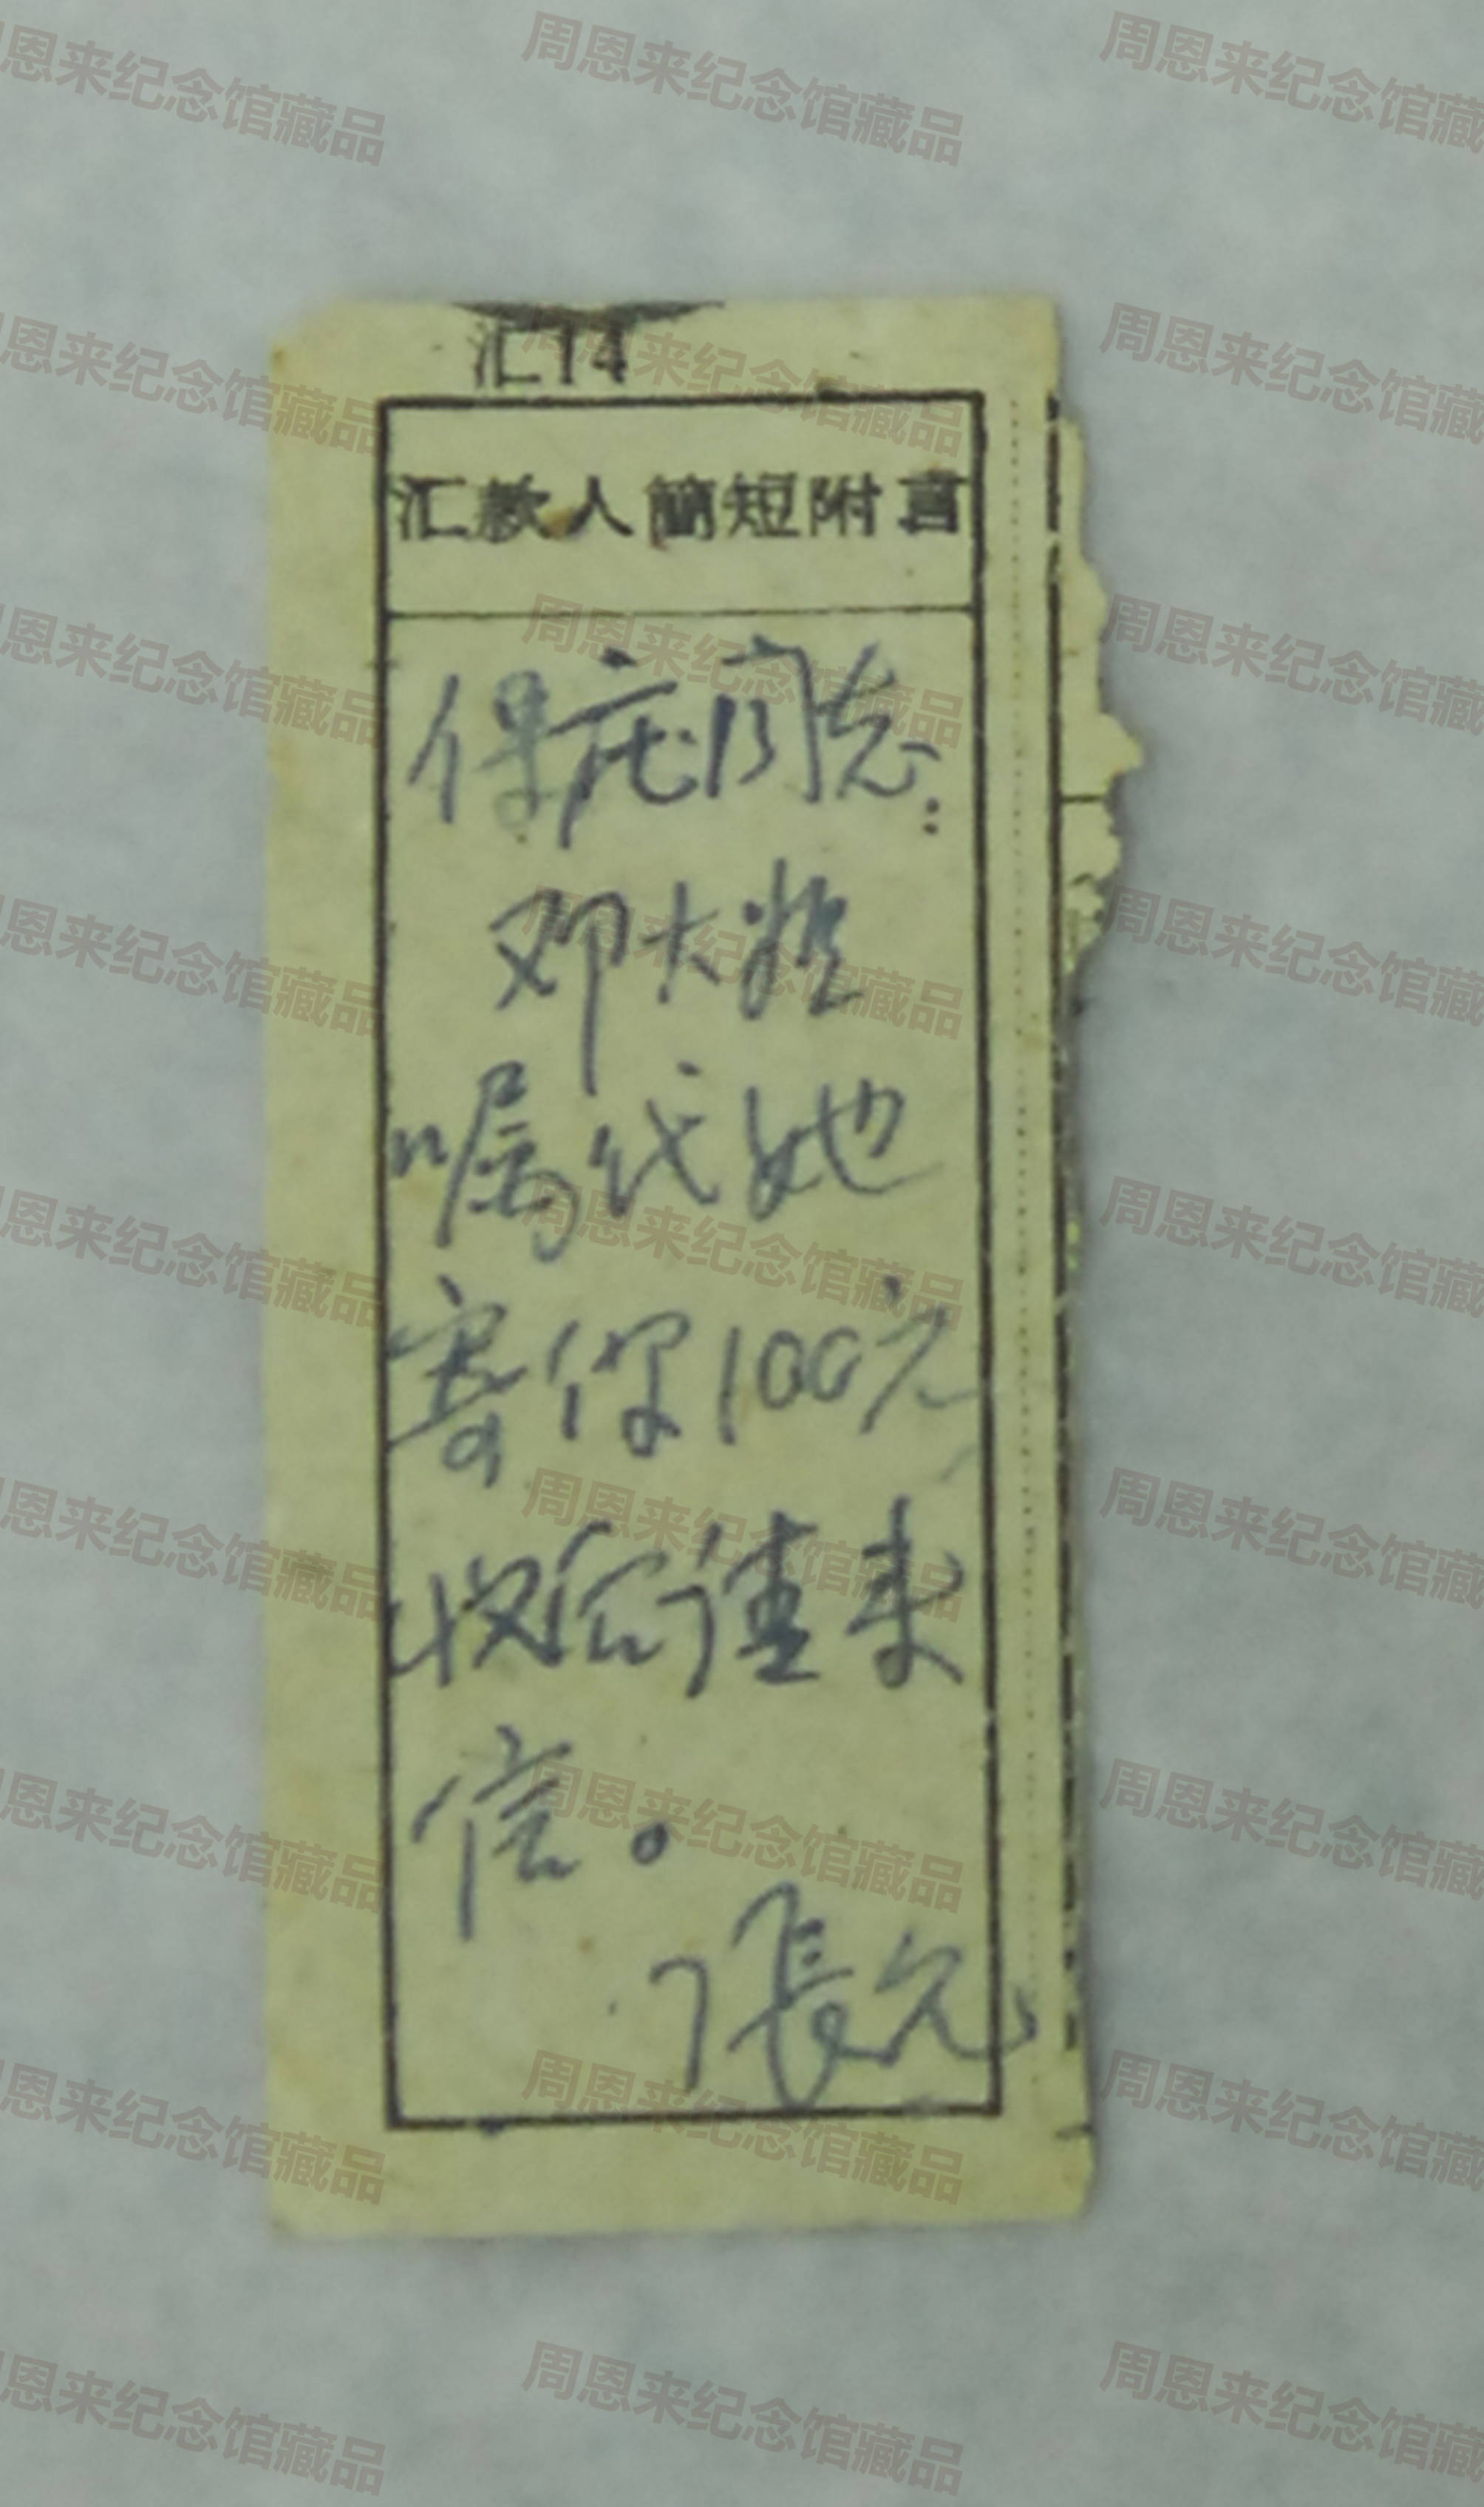 汇14
汇款人簡短附言
保庇同志：
邓大姐
嘱代她
寄你100元
收后请来
信。
張元
周恩来纪念馆藏品